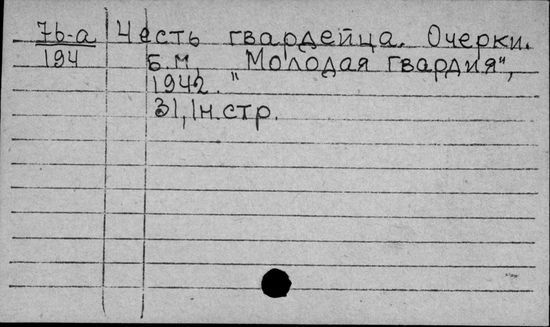 7b-a Честь гвардейца. Очерки.
194 Б.М, "Молодая гвардия",
1942.
31, 1н.стр.